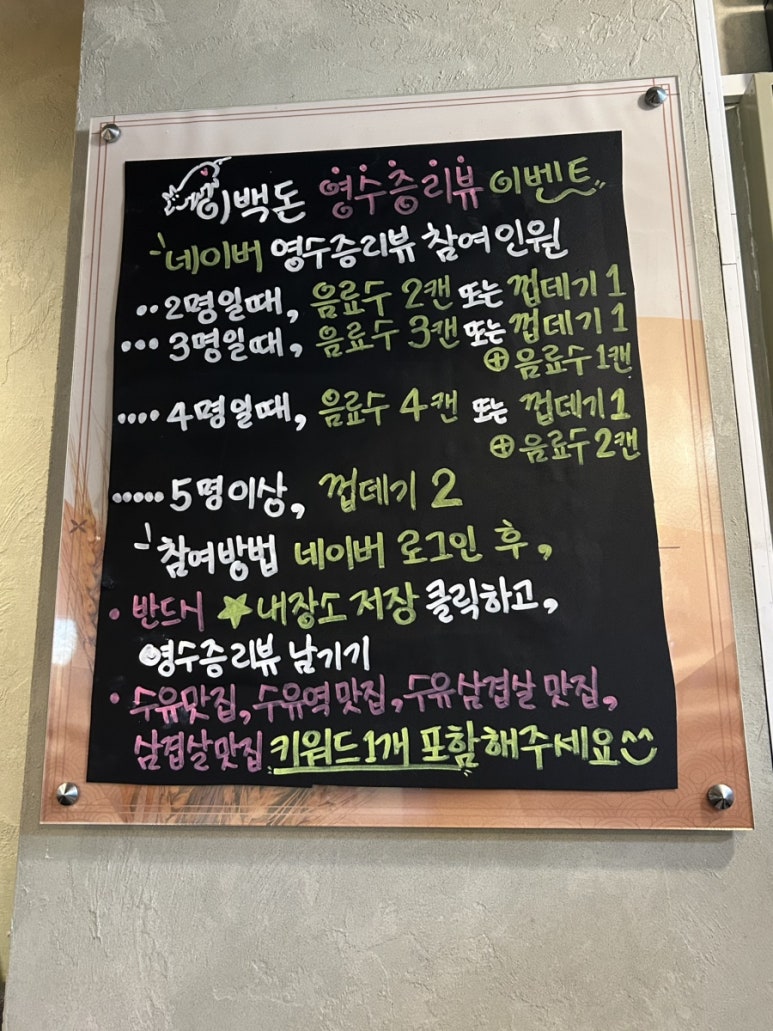 이백돈 영수증리뷰 이벤트
네이버 영수증리뷰 참여인원
·· 2명일때, 음료수 2캔 또는 껍데기 1
··· 3명일때, 음료수 3캔 또는 껍데기 1
⊕ 음료수 1캔
···· 4명일때, 음료수 4캔 또는 껍데기 1
⊕ 음료수 2캔
····· 5명이상, 껍데기 2
참여방법 네이버 로그인 후,
• 반드시 ★내장소 저장 클릭하고,
영수증리뷰 남기기
• 수유맛집, 수유역맛집, 수유삼겹살 맛집,
삼겹살맛집 키워드 1개 포함해주세요^^